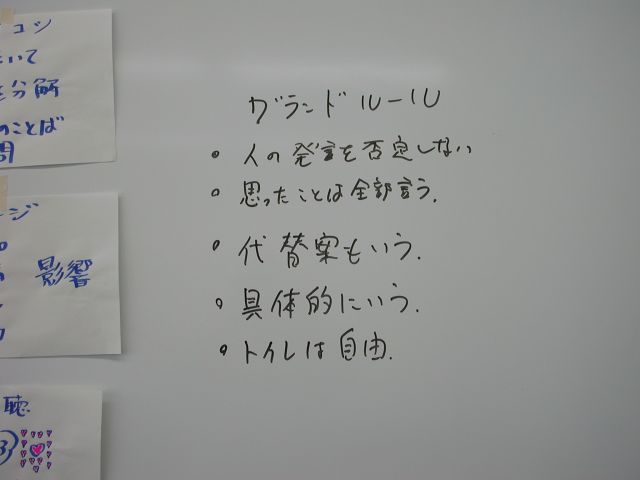 コツ
いて
分解
のことば
問
ージ
影響
聴
グランドルール
• 人の発言を否定しない
• 思ったことは全部言う.
• 代替案もいう.
• 具体的にいう.
• トイレは自由.